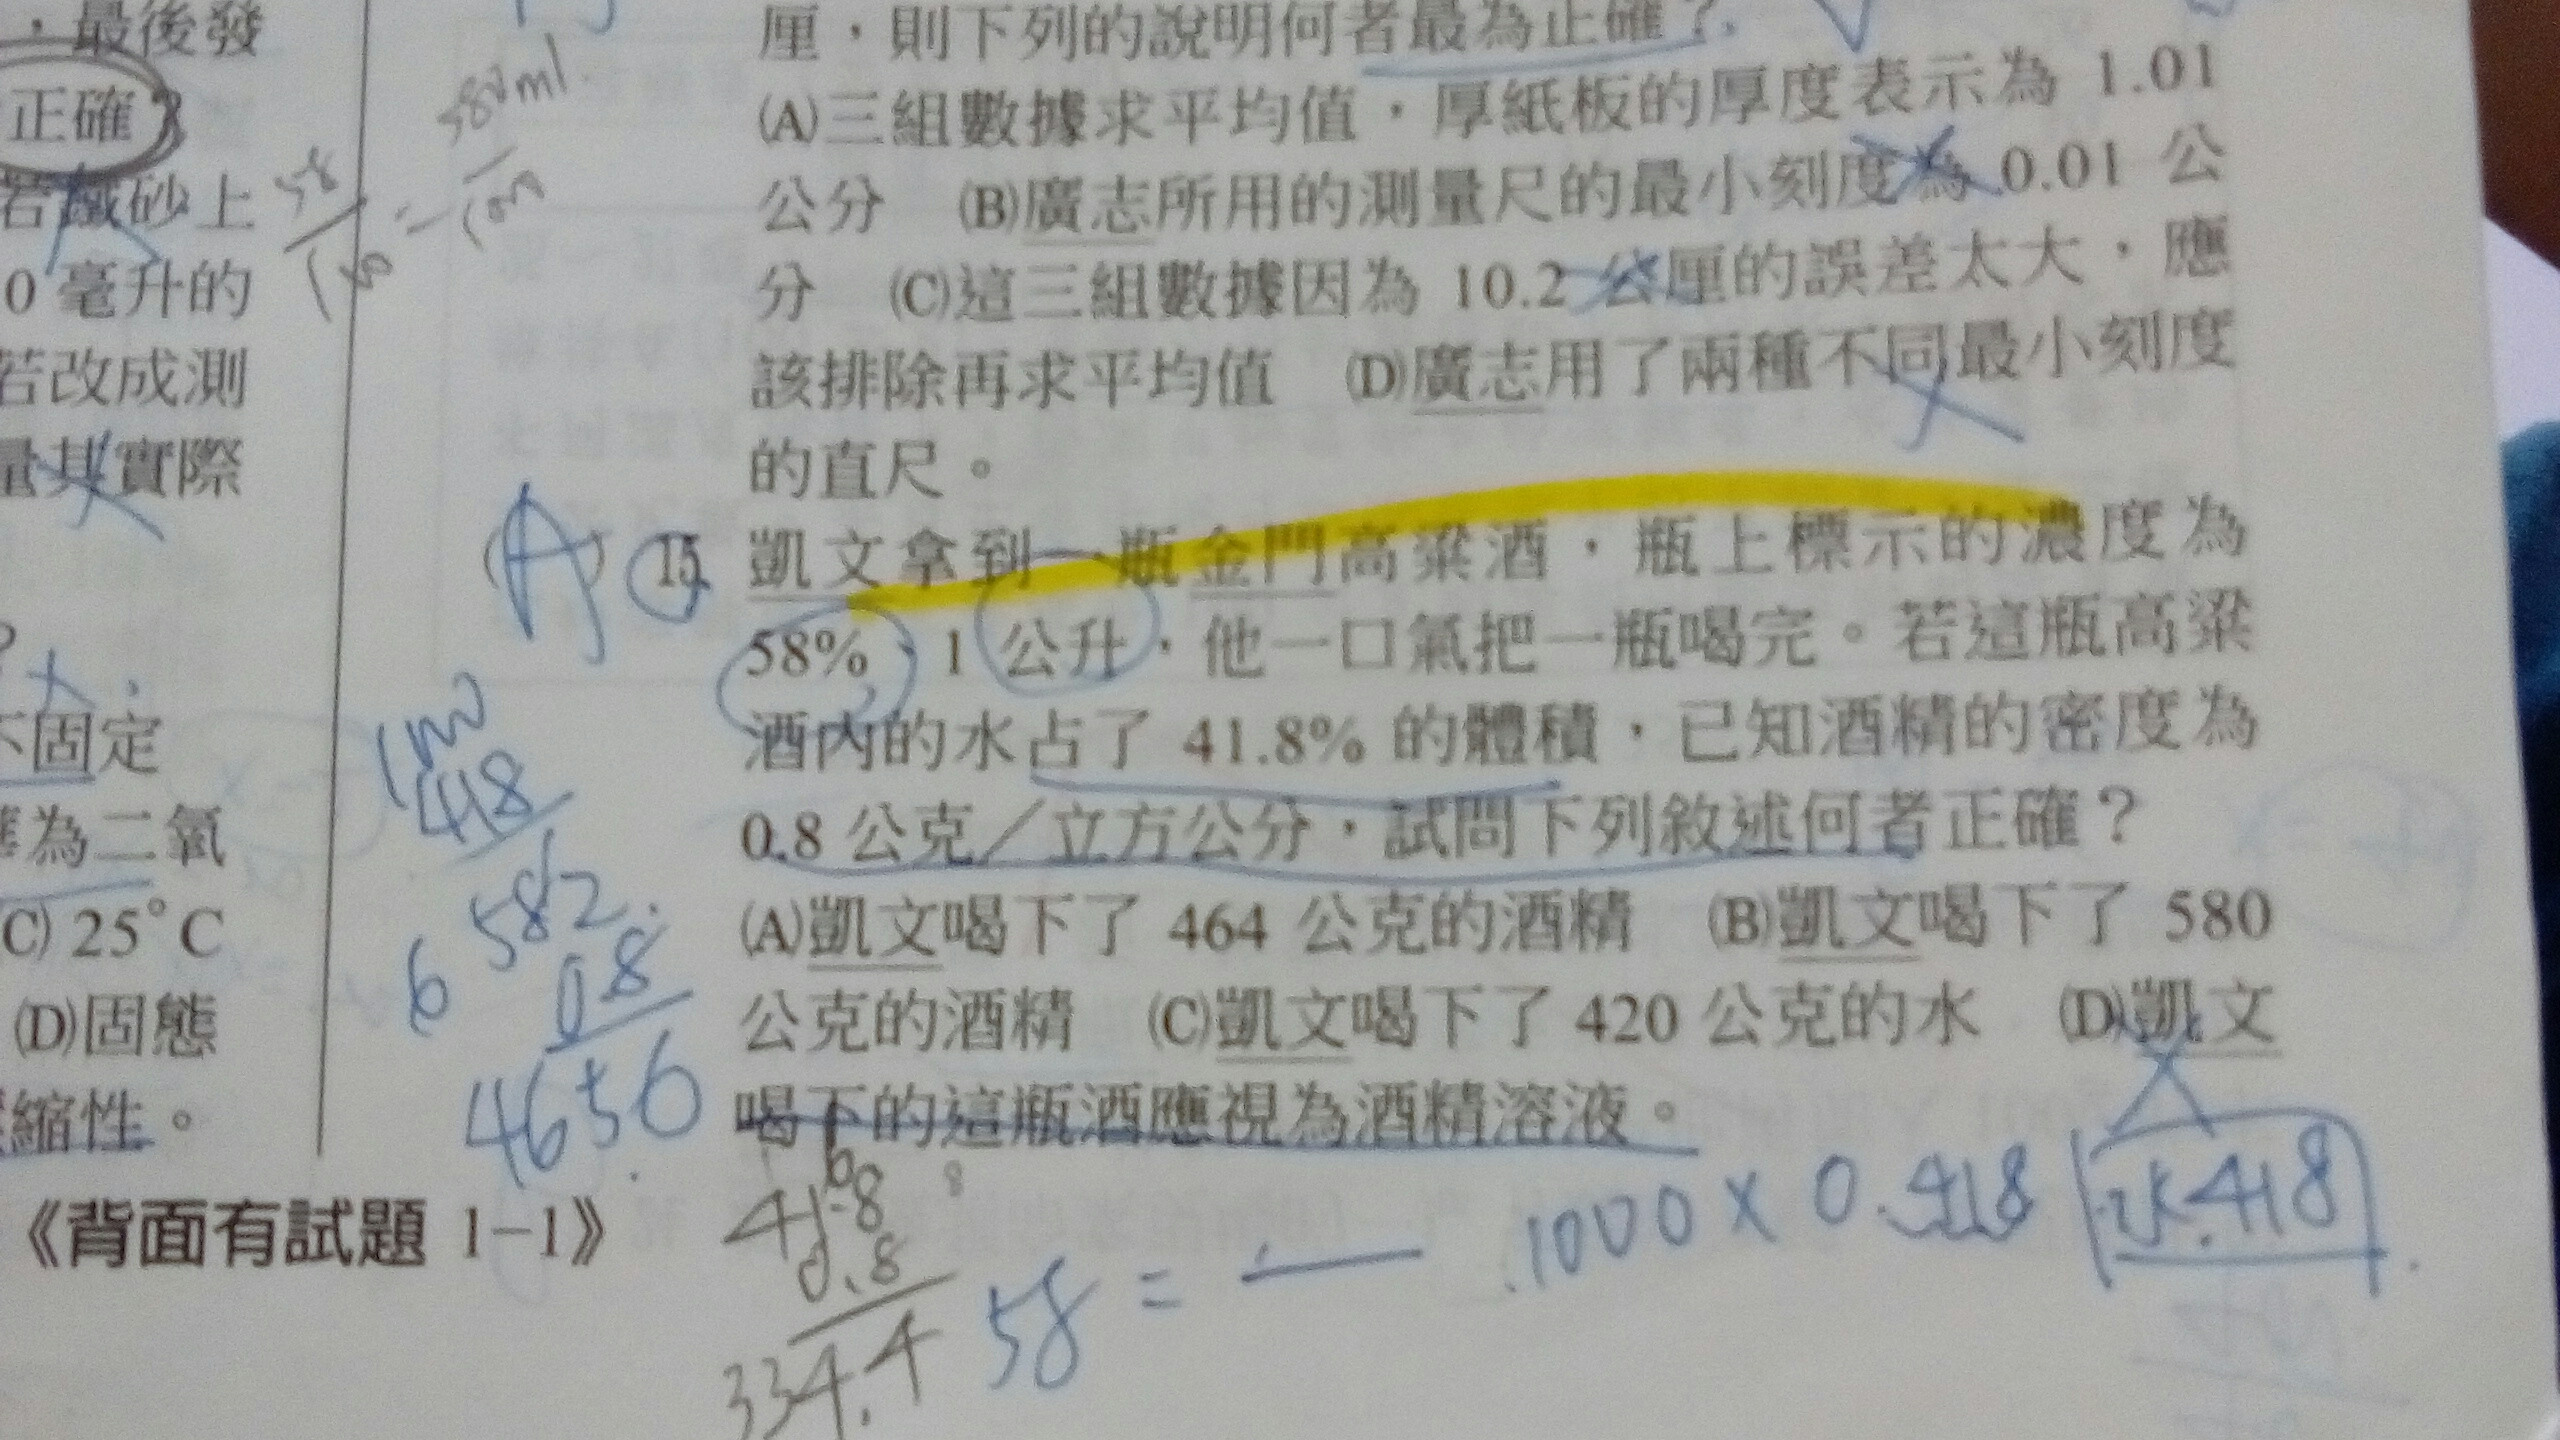 ，最後發
正確？
若鐵砂上
0 毫升的
若改成測
量其實際
?
不固定
為二氧
(C) 25°C
(D)固態
縮性。
《背面有試題 1-1》
58
=
580ml
厘，則下列的說明何者最為正確？
(A)三組數據求平均值，厚紙板的厚度表示為 1.01
公分 (B)廣志所用的測量尺的最小刻度為 0.01 公
分 (C)這三組數據因為 10.2 公厘的誤差太大，應
該排除再求平均值 (D)廣志用了兩種不同最小刻度
的直尺。
(A) 15. 凱文拿到一瓶金門高粱酒，瓶上標示的濃度為
58%、1 公升，他一口氣把一瓶喝完。若這瓶高粱
酒內的水占了 41.8% 的體積，已知酒精的密度為
0.8 公克／立方公分，試問下列敘述何者正確？
(A)凱文喝下了 464 公克的酒精 (B)凱文喝下了 580
公克的酒精 (C)凱文喝下了 420 公克的水 (D)凱文
喝下的這瓶酒應視為酒精溶液。
418
582
6
0.8
4656
0.8
334.4
58 =
1000 x 0.418
水.418